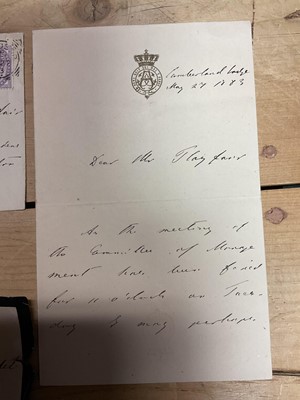 Cumberland Lodge
May 27 1873
Dear Mr Playfair
As the meeting of
the Committee of Manage
ment has been fixed
for 11 o'clock on Tues-
day I may perhaps